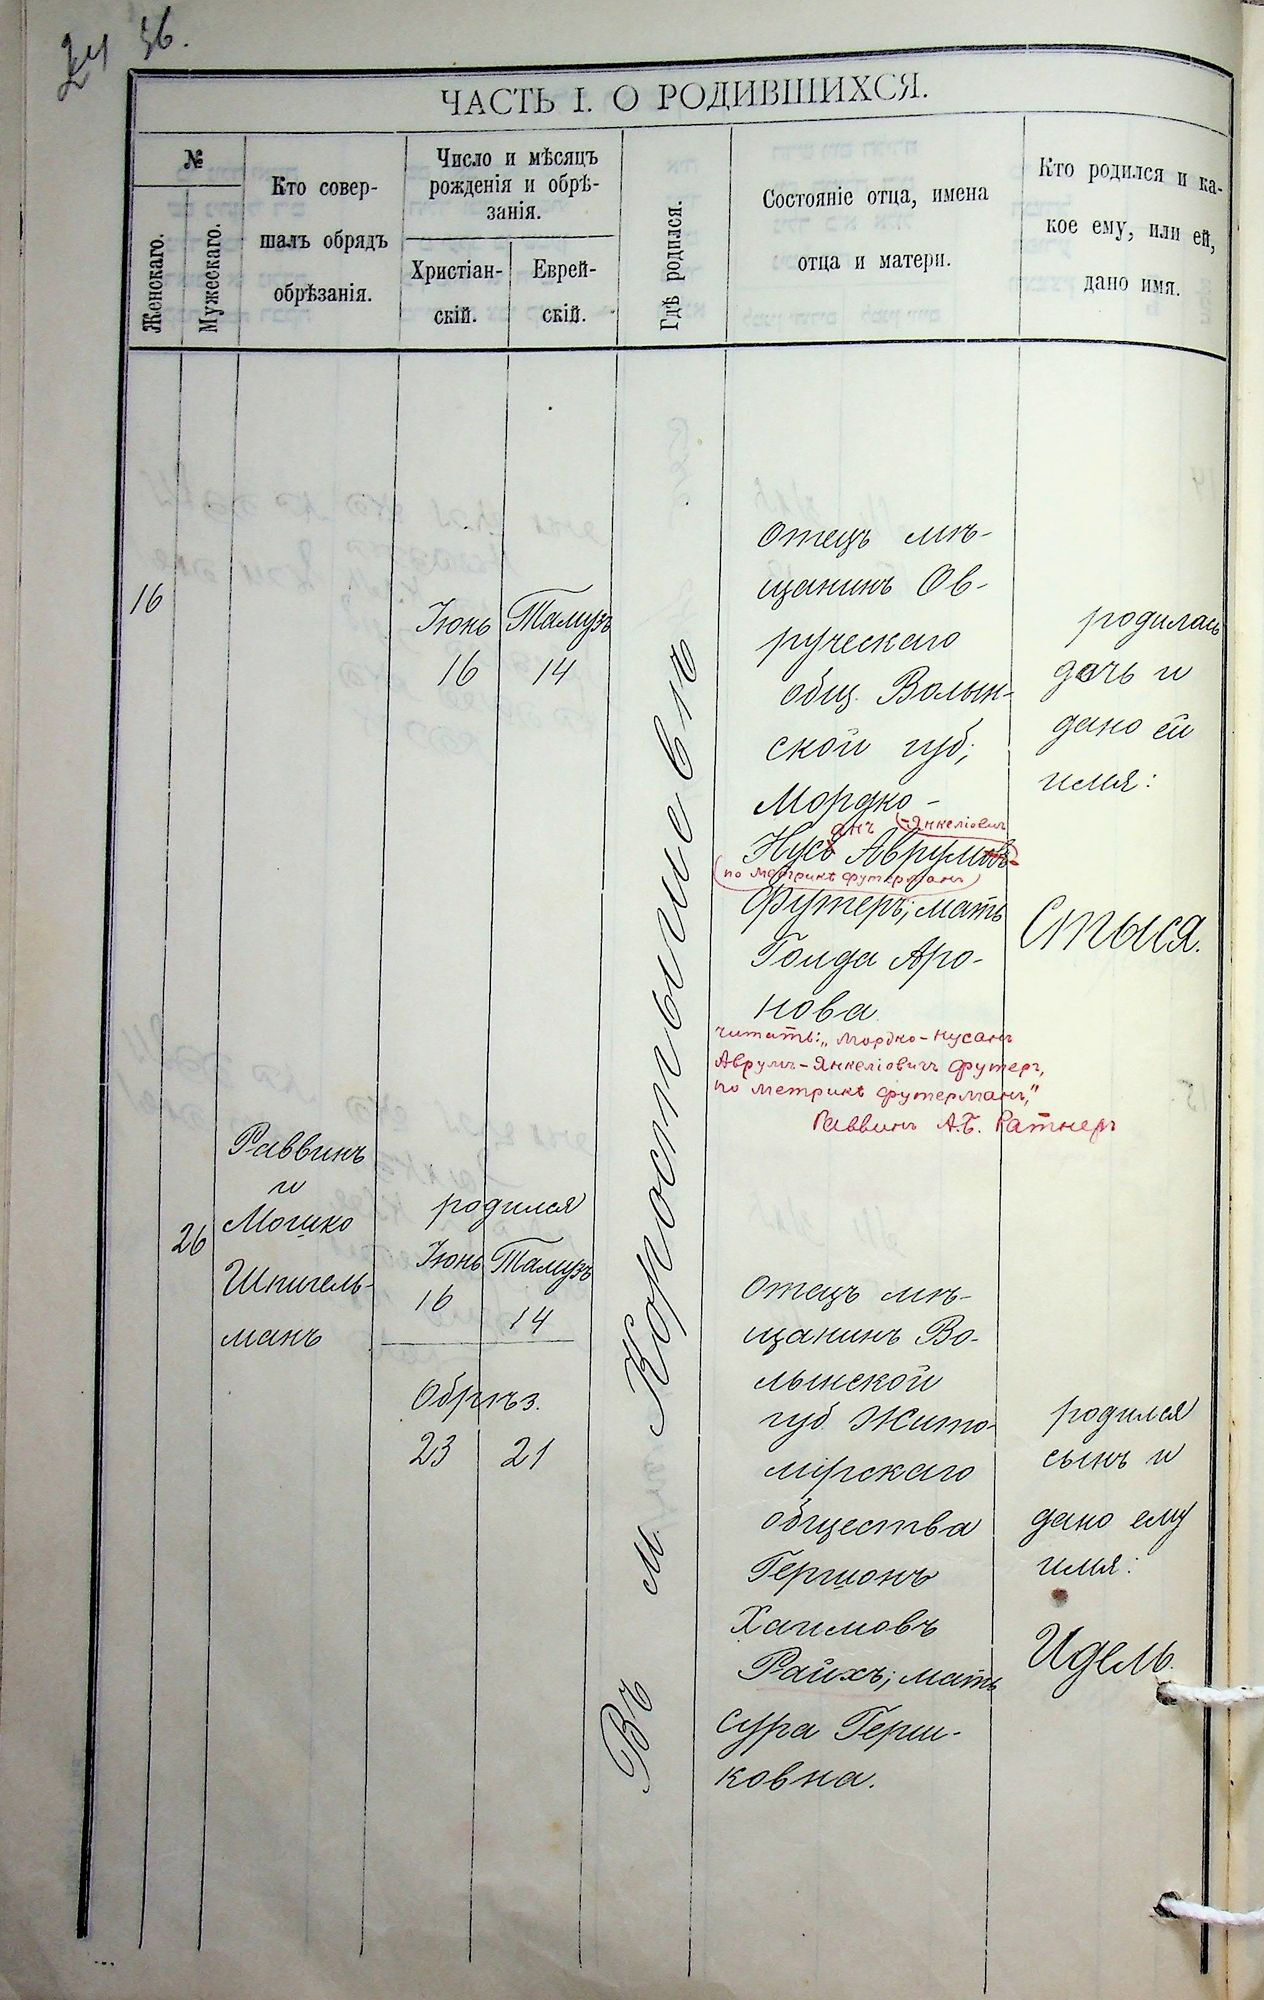 36.
ЧАСТЬ I. О РОДИВШИХСЯ.
№
Женскаго.
Мужескаго.
Кто совер-
шалъ обрядъ
обрѣзанія.
Число и мѣсяцъ
рожденія и обрѣ-
занія.
Христіан-
скій.
Еврей-
скій.
Гдѣ родился.
Состояніе отца, имена
отца и матери.
Кто родился и ка-
кое ему, или ей,
дано имя.
16
Іюнь
16
Тамузъ
14
Въ м. Коростышевѣ
Отецъ мѣ-
щанинъ Ов-
ручскаго
общ. Волын-
ской губ;
Мордко-
анъ -Янкеліович
Нусъ Аврумовъ-
(по метрикѣ Футерманъ)
Футеръ; мать
Голда Аро-
нова.
читать: „Мордко-Нусанъ
Аврумъ-Янкеліовичъ Футеръ,
по метрикѣ Футерманъ,"
Раввинъ А.Б. Ратнеръ
родилась
дочь и
дано ей
имя:
Стыся.
26
Раввинъ
и
Мошко
Шпигель-
манъ
родился
Іюнь
16
Тамузъ
14
Обрѣз.
23
21
Отецъ мѣ-
щанинъ Во-
лынской
губ. Жито-
мірскаго
общества
Гершонъ
Хаимовъ
Райхъ; мать
Сура Герш-
ковна.
родился
сынъ и
дано ему
имя:
Идель.